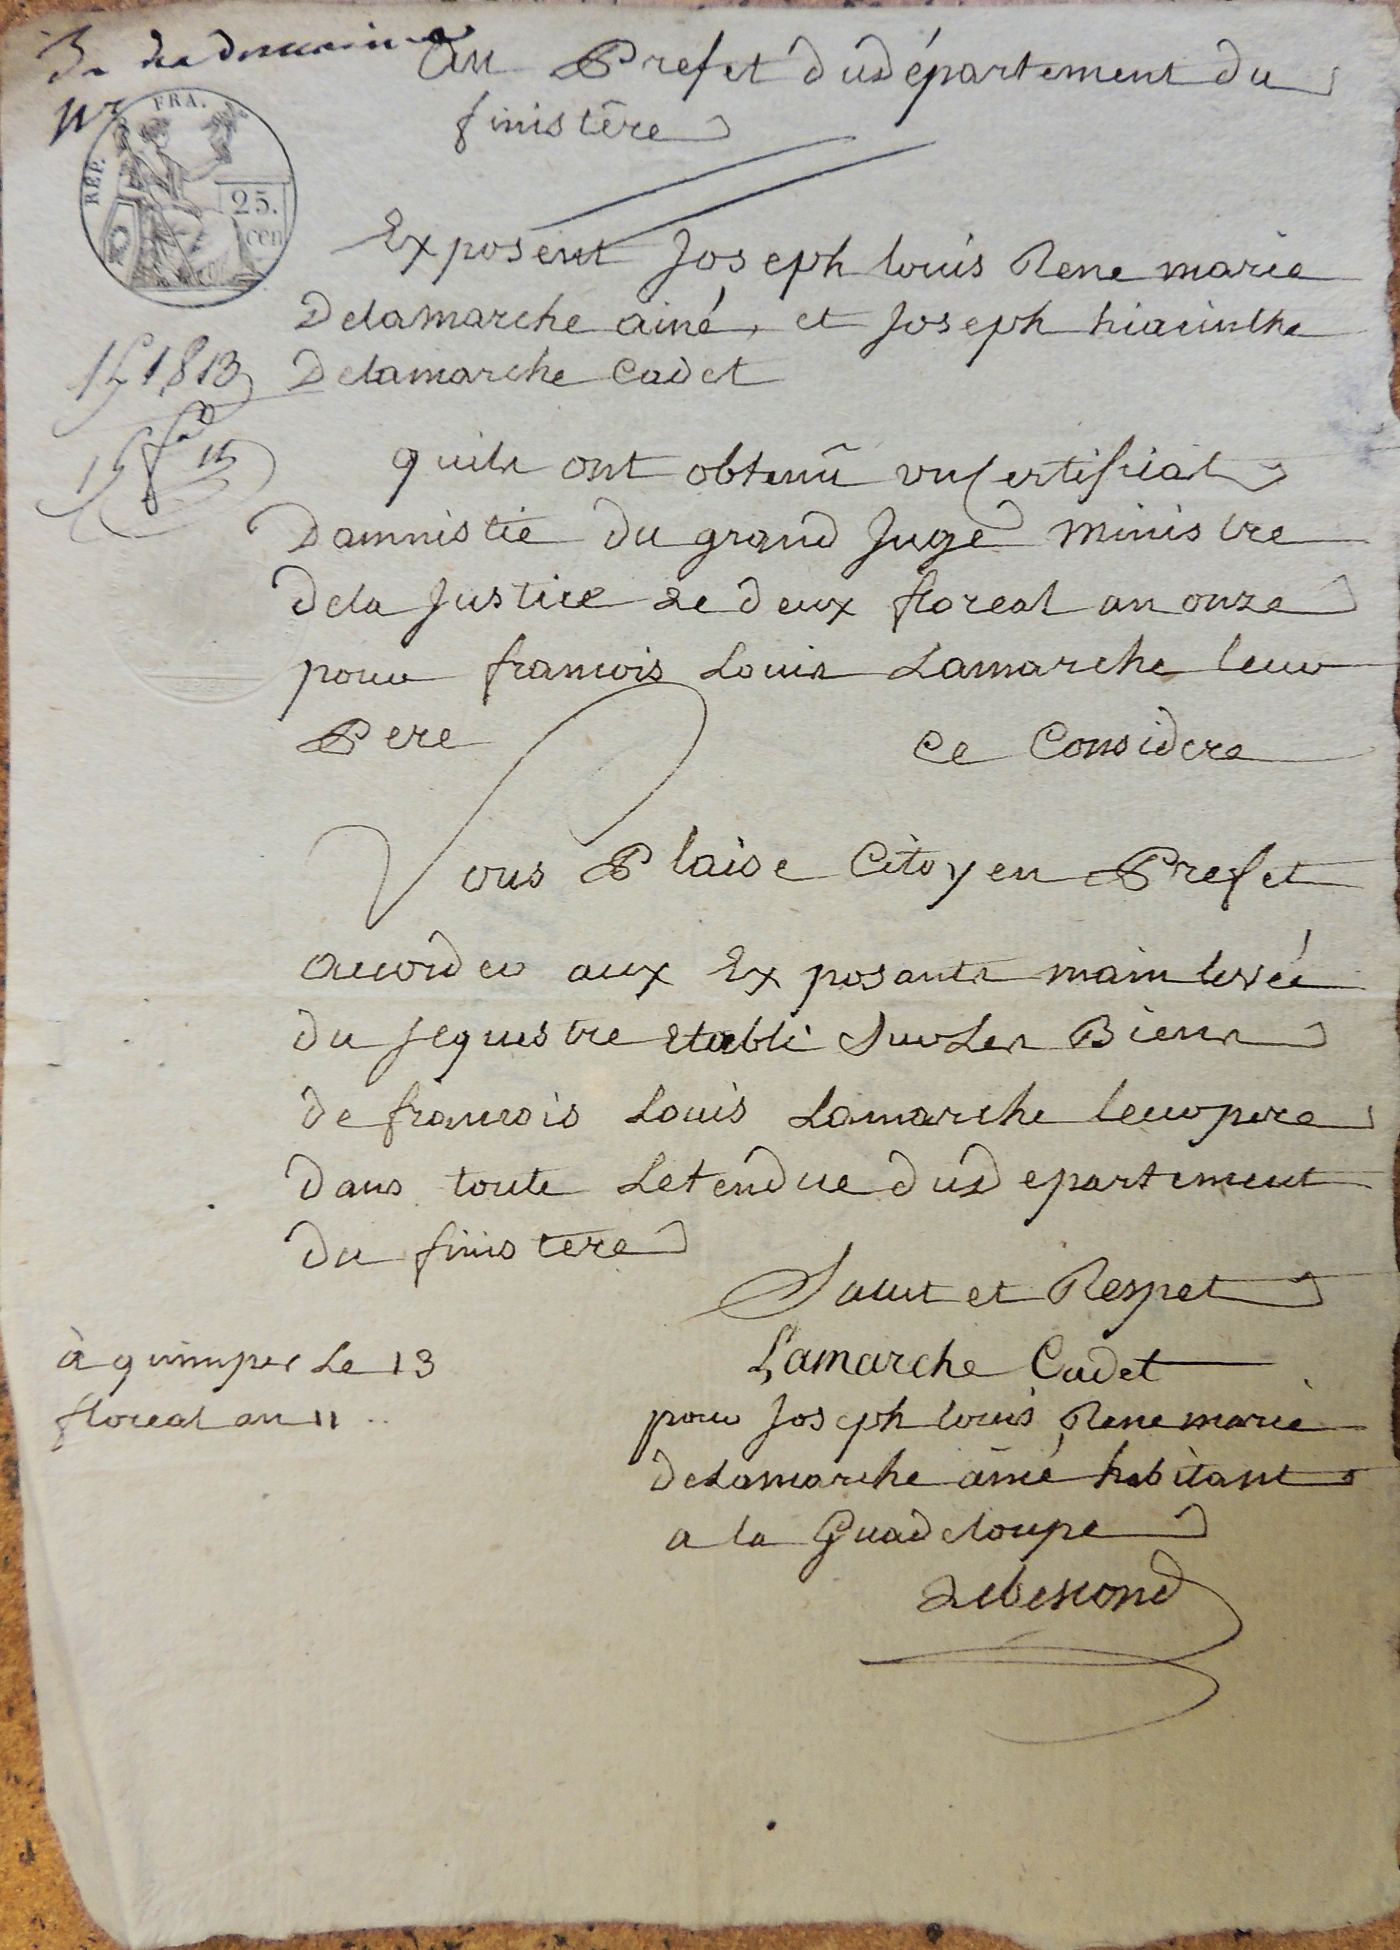 Bau des domaines
Au Prefet dudépartement du
finistère
REP. FRA.
25.
cen
Exposent Joseph louis Rene marie
Delamarche ainé, et Joseph hiacinthe
Delamarche Cadet
1813
quils ont obtenû un Certificat
Damnistie du grand Juge ministre
dela Justice Le deux floreal an onze
pour francois Louis Lamarche leur
Pere ce Considere
Vous Plaise Citoyen Prefet
accorder aux Exposants main levée
du sequestre Etabli Sur Les Biens
de francois Louis Lamarche leur pere
dans toute Letendue du Departement
du finistere
Salut et Respet
à quimper Le 13
floreal an 11
Lamarche Cadet
pour Joseph louis Rene marie
deLamarche ainé habitant
a la Guadeloupe
Lebescond